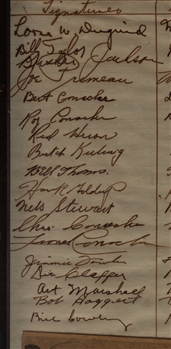 Signatures
Lorne W Duguid
Bill Taylor
Busher Jackson
Joe Primeau
Bert Conacher
Roy Conacher
Red Heron
Butch Keeling
Bill Thoms
Hank Goldup
Nels Stewart
Chas. Conacher
Lionel Conacher
Jimmie
Dit Clapper
Art Marshall
Bob Haggert
Bill Cowley